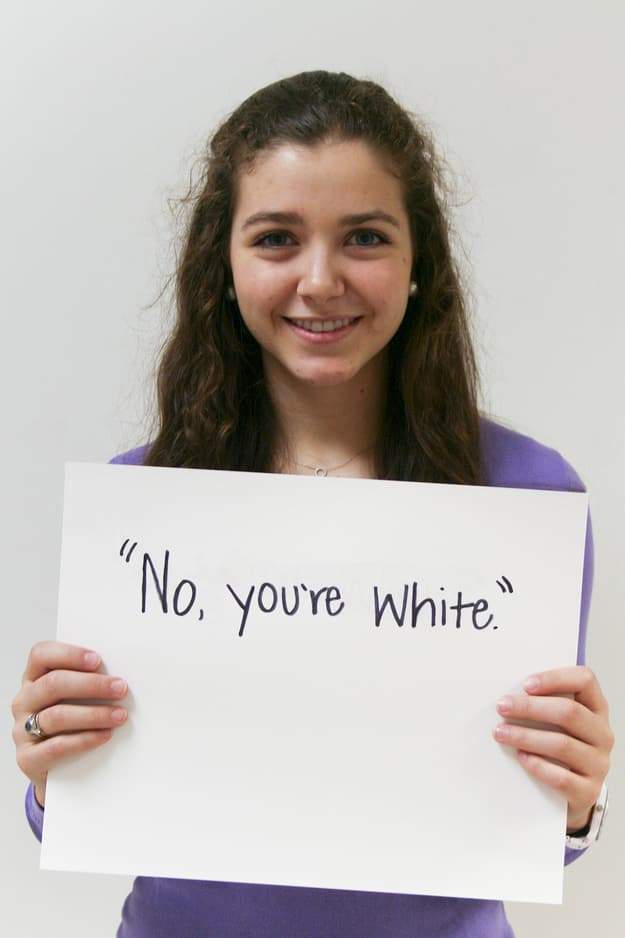 "No, you're white."